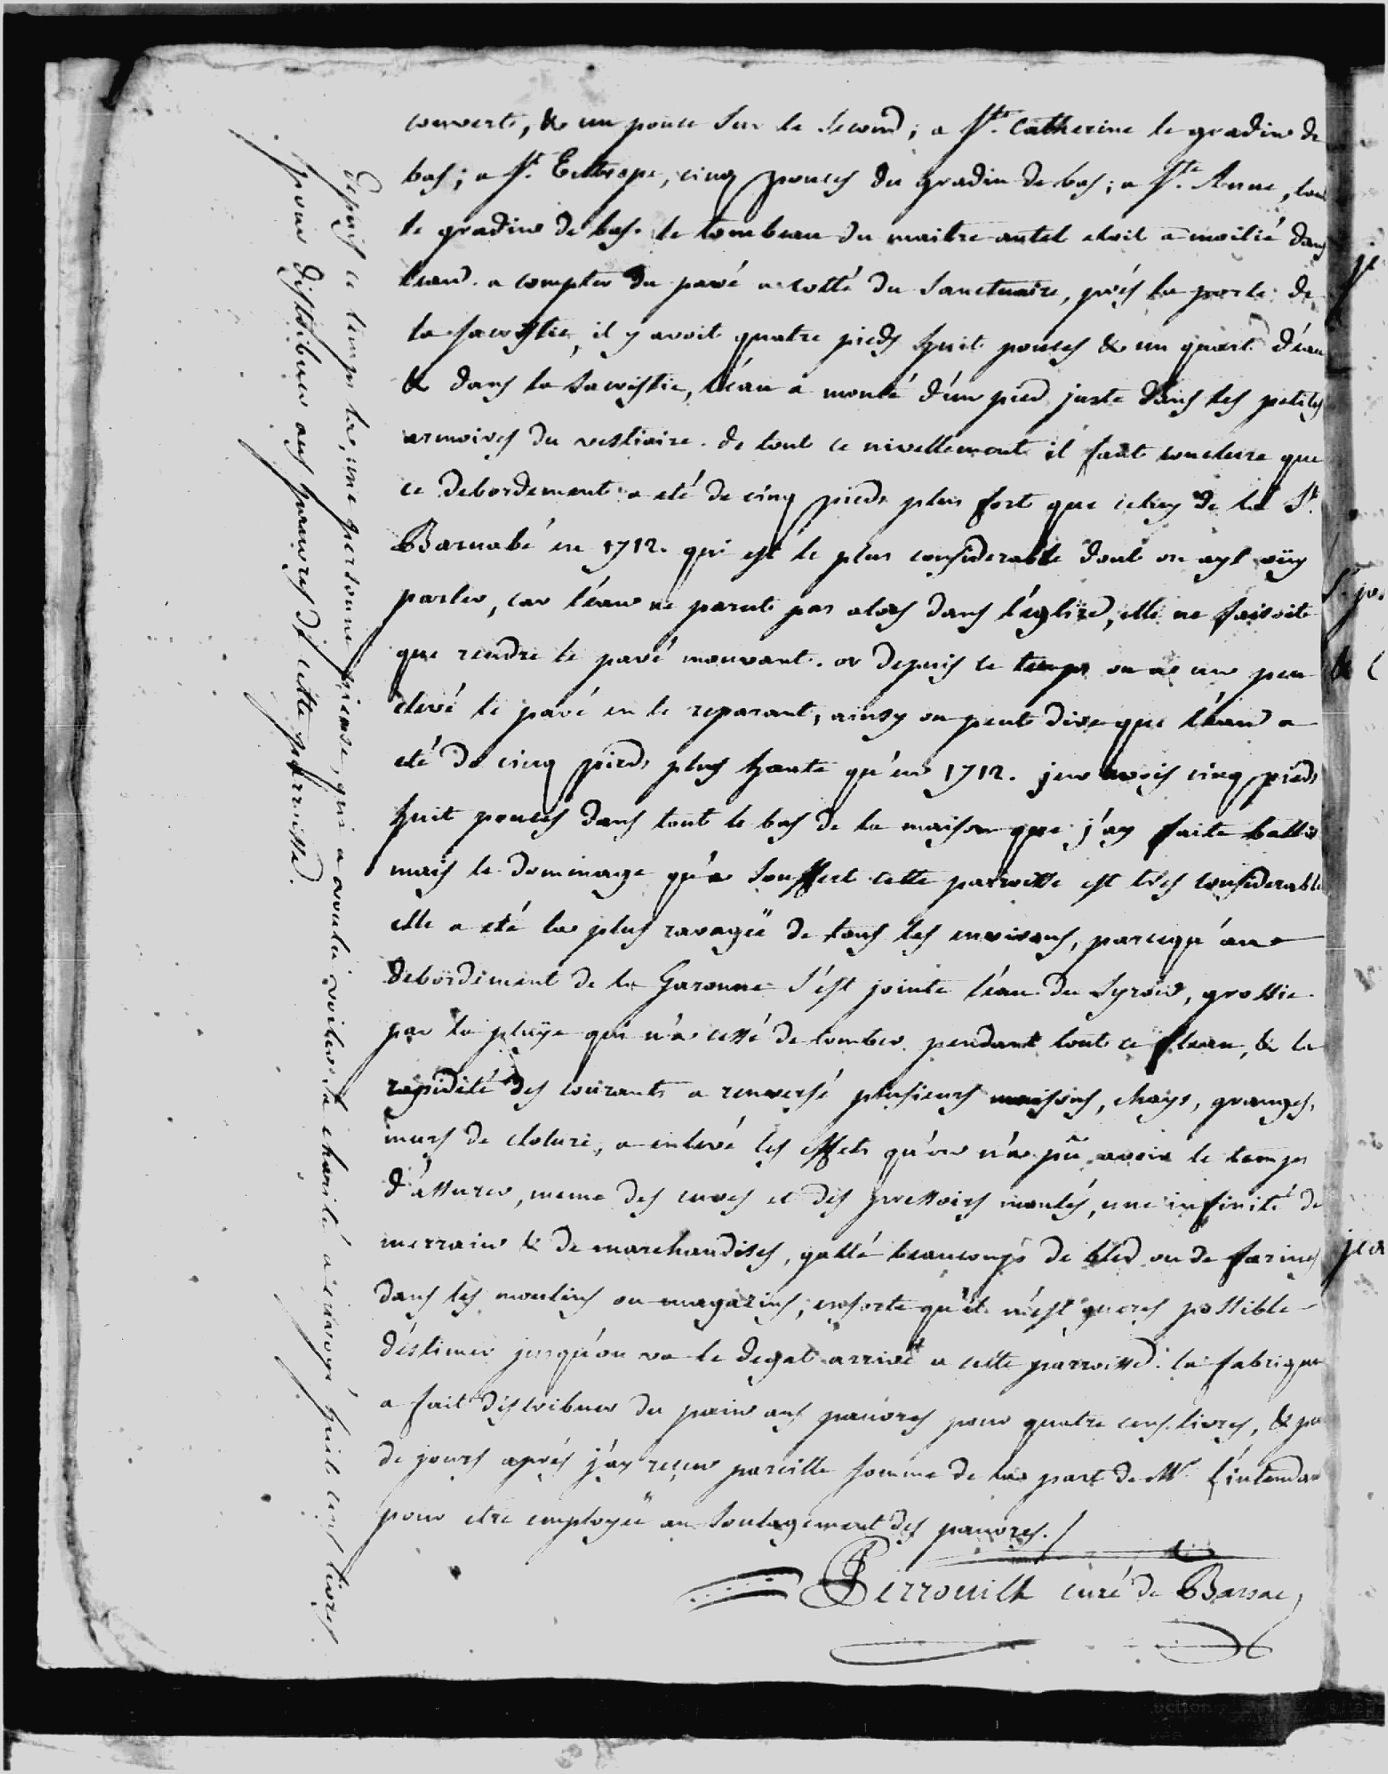 couverts, & un pouce sur le second; a Ste. Catherine le gradin de
bas; a St. Eutrope, cinq pouces du gradin de bas; a Ste. Anne, tout
le gradin de bas. le tombeau du maitre autel etoit a moitié dans
l'eau. a compter du pavé a cotté du Sanctuaire, prés la porte de
la sacristie, il y avoit quatre pieds huit pouces & un quart d'eau
& dans la sacristie, l'eau a monté d'un pied juste dans les petites
armoires du vestiaire. de tout ce nivellement il faut conclure que
ce debordement a eté de cinq pieds plus fort que celuy de la St.
Barnabé en 1712. qui est le plus considerable dont on ayt oüy
parler, car l'eau ne parut pas alors dans l'eglise, elle ne faisoit
que rendre le pavé mouvant. or depuis ce temps on a un peu
elevé le pavé en le reparant, ainsy on peut dire que l'eau a
eté de cinq pieds plus haute qu'en 1712. j'en avois cinq pieds
huit pouces dans tout le bas de la maison que j'ay faite battir
mais le dommage qu'a souffert cette parroisse est tres considerable
elle a eté la plus ravagëe de tous les environs, parcequ'au
debordement de la Garonne s'est jointe l'eau du Syron, grossie
par la pluÿe qui n'a cessé de tomber pendant tout ce fleau, & la
rapidité des courants a renversé plusieurs maisons, chays, granges,
murs de cloture, a enlevé les effets qu'on n'a pû avoir le temps
d'assurer, meme des cuves et des pressoirs montés, une infinité de
merrain & de marchandises, gatté beaucoup de bled ou de farines
dans les moulins ou magazins; ensorte qu'il n'est gueres possible
d'estimer jusqu'ou va le degat arrivé a cette parroisse. la fabrique
a fait distribuer du pain aux pauvres pour quatre cens livres, & peu
de jours aprés j'ay reçeu pareille somme de la part de Mr. L'intendant
pour etre employëe au soulagement des pauvres./
Perrouilh curé de Barsac
depuis ce temps la, une personne pieuse, qui a voulu voiler sa charité a envoyé huit cens livres
pour distribuer aux pauvres de cette parroisse.